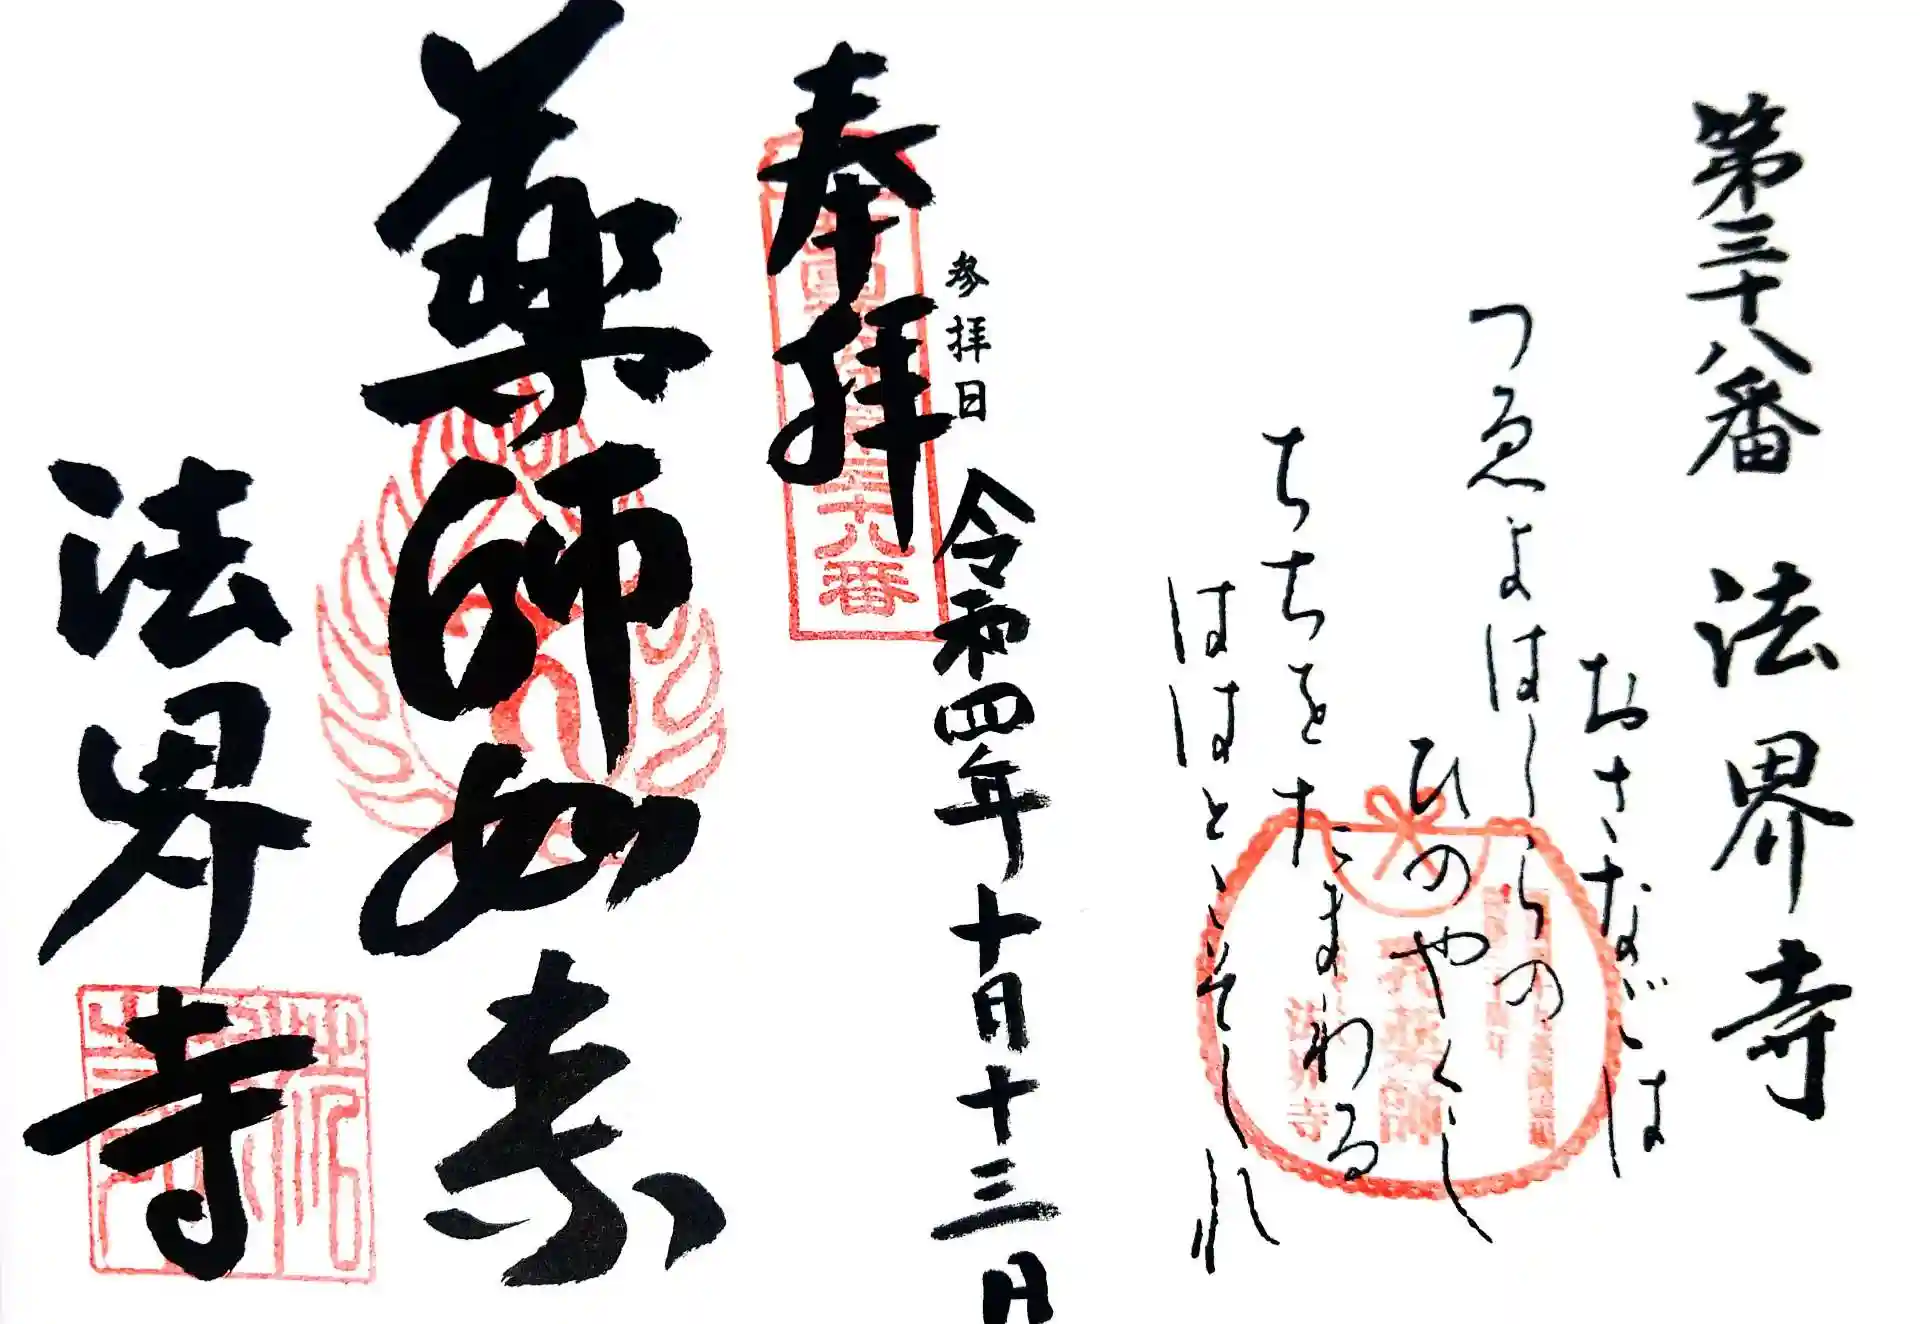 第三十八番 法界寺
おさなごは
つゑよはしらの
ひのやくし
ちちをたまわる
ははとこそしれ
乳薬師
法界寺
参拝日 令和四年十月十三日
奉拝
三十八番
薬師如来
法界寺